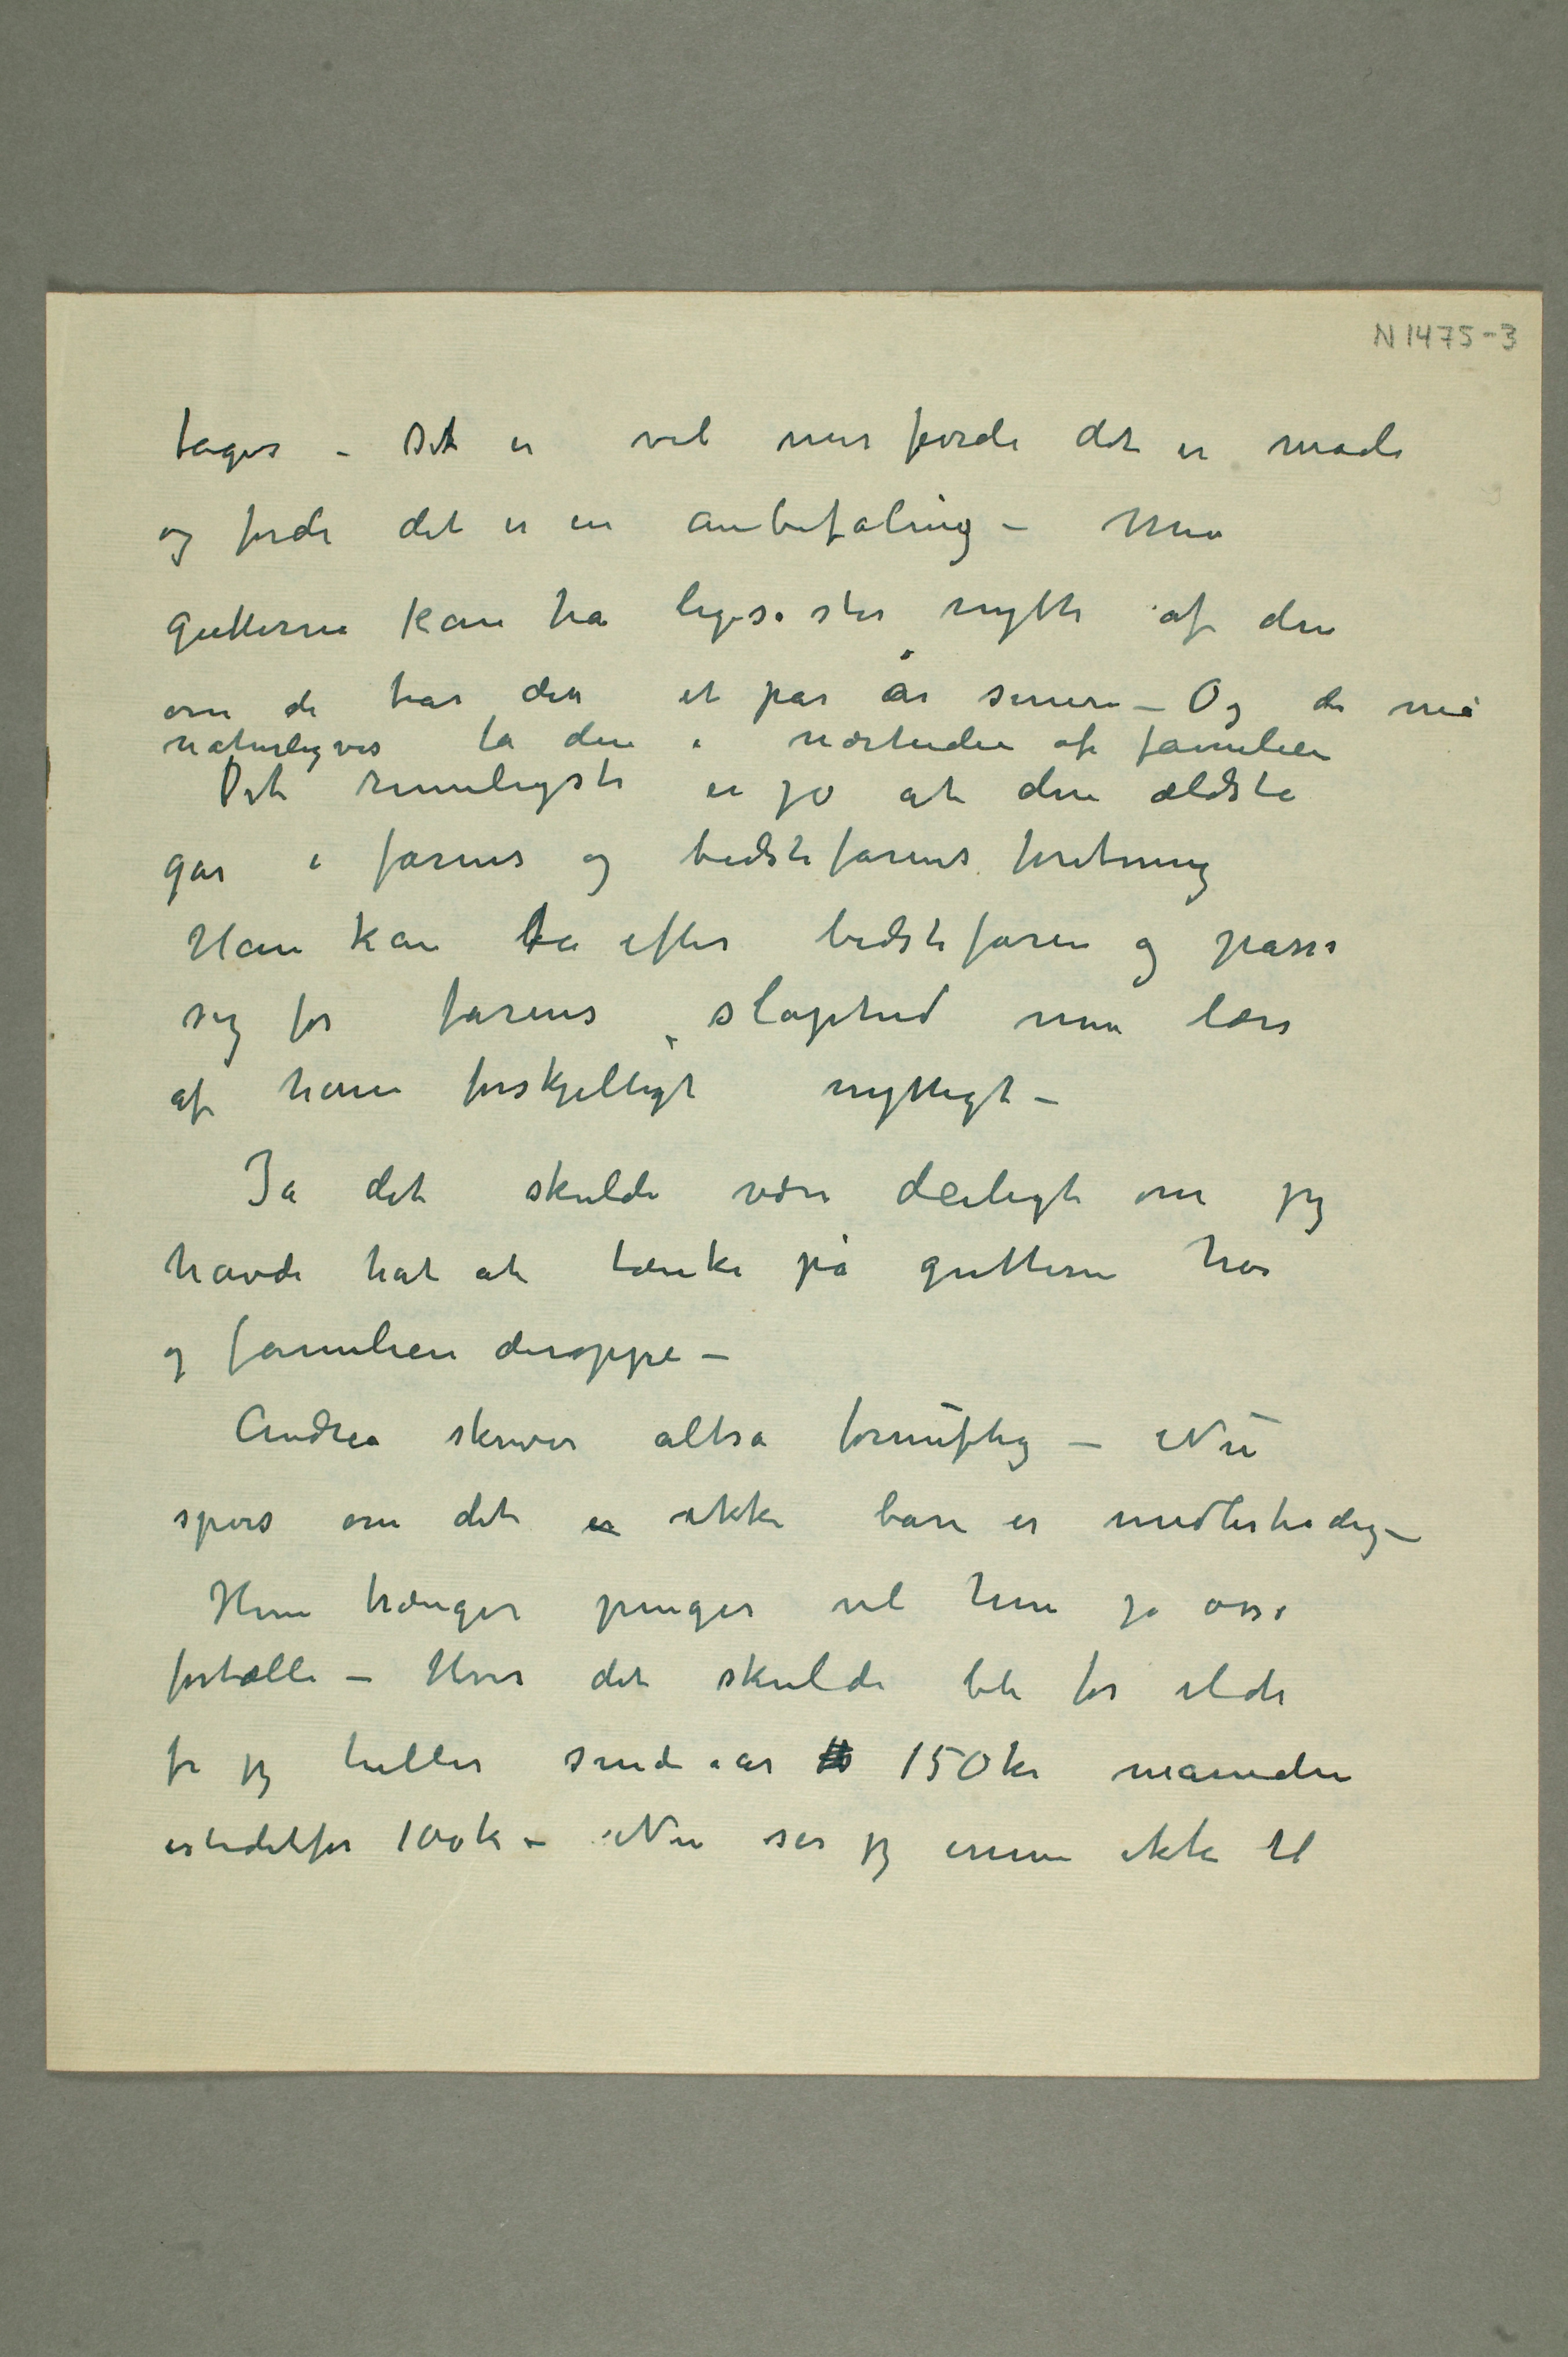 N 1475-3
tages – Det er vel mer fordi det er mode
og fordi det er en anbefaling – Men
gutterne kan ha ligeså stor nytte af den
om de tar den et par år senere – Og de må
naturligvis ta den i nærheden af familien
Det rimeligste er jo at den ældste
går i farens og bedstefarens forretning
Han kan ta efter bedstefaren og passe
sig for farens slaphed men lære
af ham forskjelligt nyttigt –
Ja det skulde være deiligt om jeg
havde hat at tænke på gutterne her
og familien deroppe –
Andrea skriver altså fornuftig – Nu
spørs om det er ikke bare er midlertidig –
Hun trænger penger vil hun jo også
fortælle – Hvis det skulde bli for ilde
får jeg heller sende iår 150 kr måneden
istedetfor 100 k – Nu ser jeg ennu ikke til